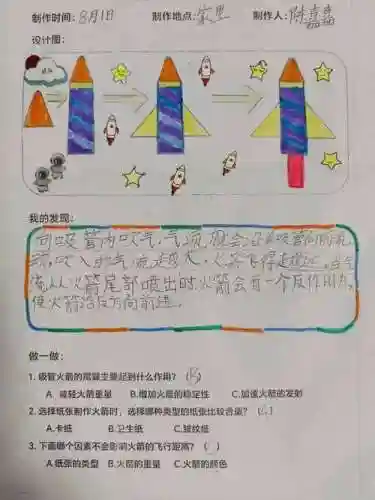 制作时间：8月1日 制作地点：家里 制作人：陈嘉
设计图：
我的发现：
向吸管内吹气，气流就会沿着吸管向前流
动，吹入的气流越大，火箭飞得越远，当气
流从火箭尾部喷出时火箭会有一个反作用力，
使火箭沿反方向前进。
做一做：
1. 吸管火箭的尾翼主要起到什么作用？（B）
A. 减轻火箭重量 B.增加火箭的稳定性 C.加速火箭的发射
2. 选择纸张制作火箭时，选择哪种类型的纸张比较合适？（ ）
A.卡纸 B.卫生纸 C.皱纹纸
3. 下面哪个因素不会影响火箭的飞行距离？（ ）
A.纸张的类型 B.火箭的重量 C.火箭的颜色